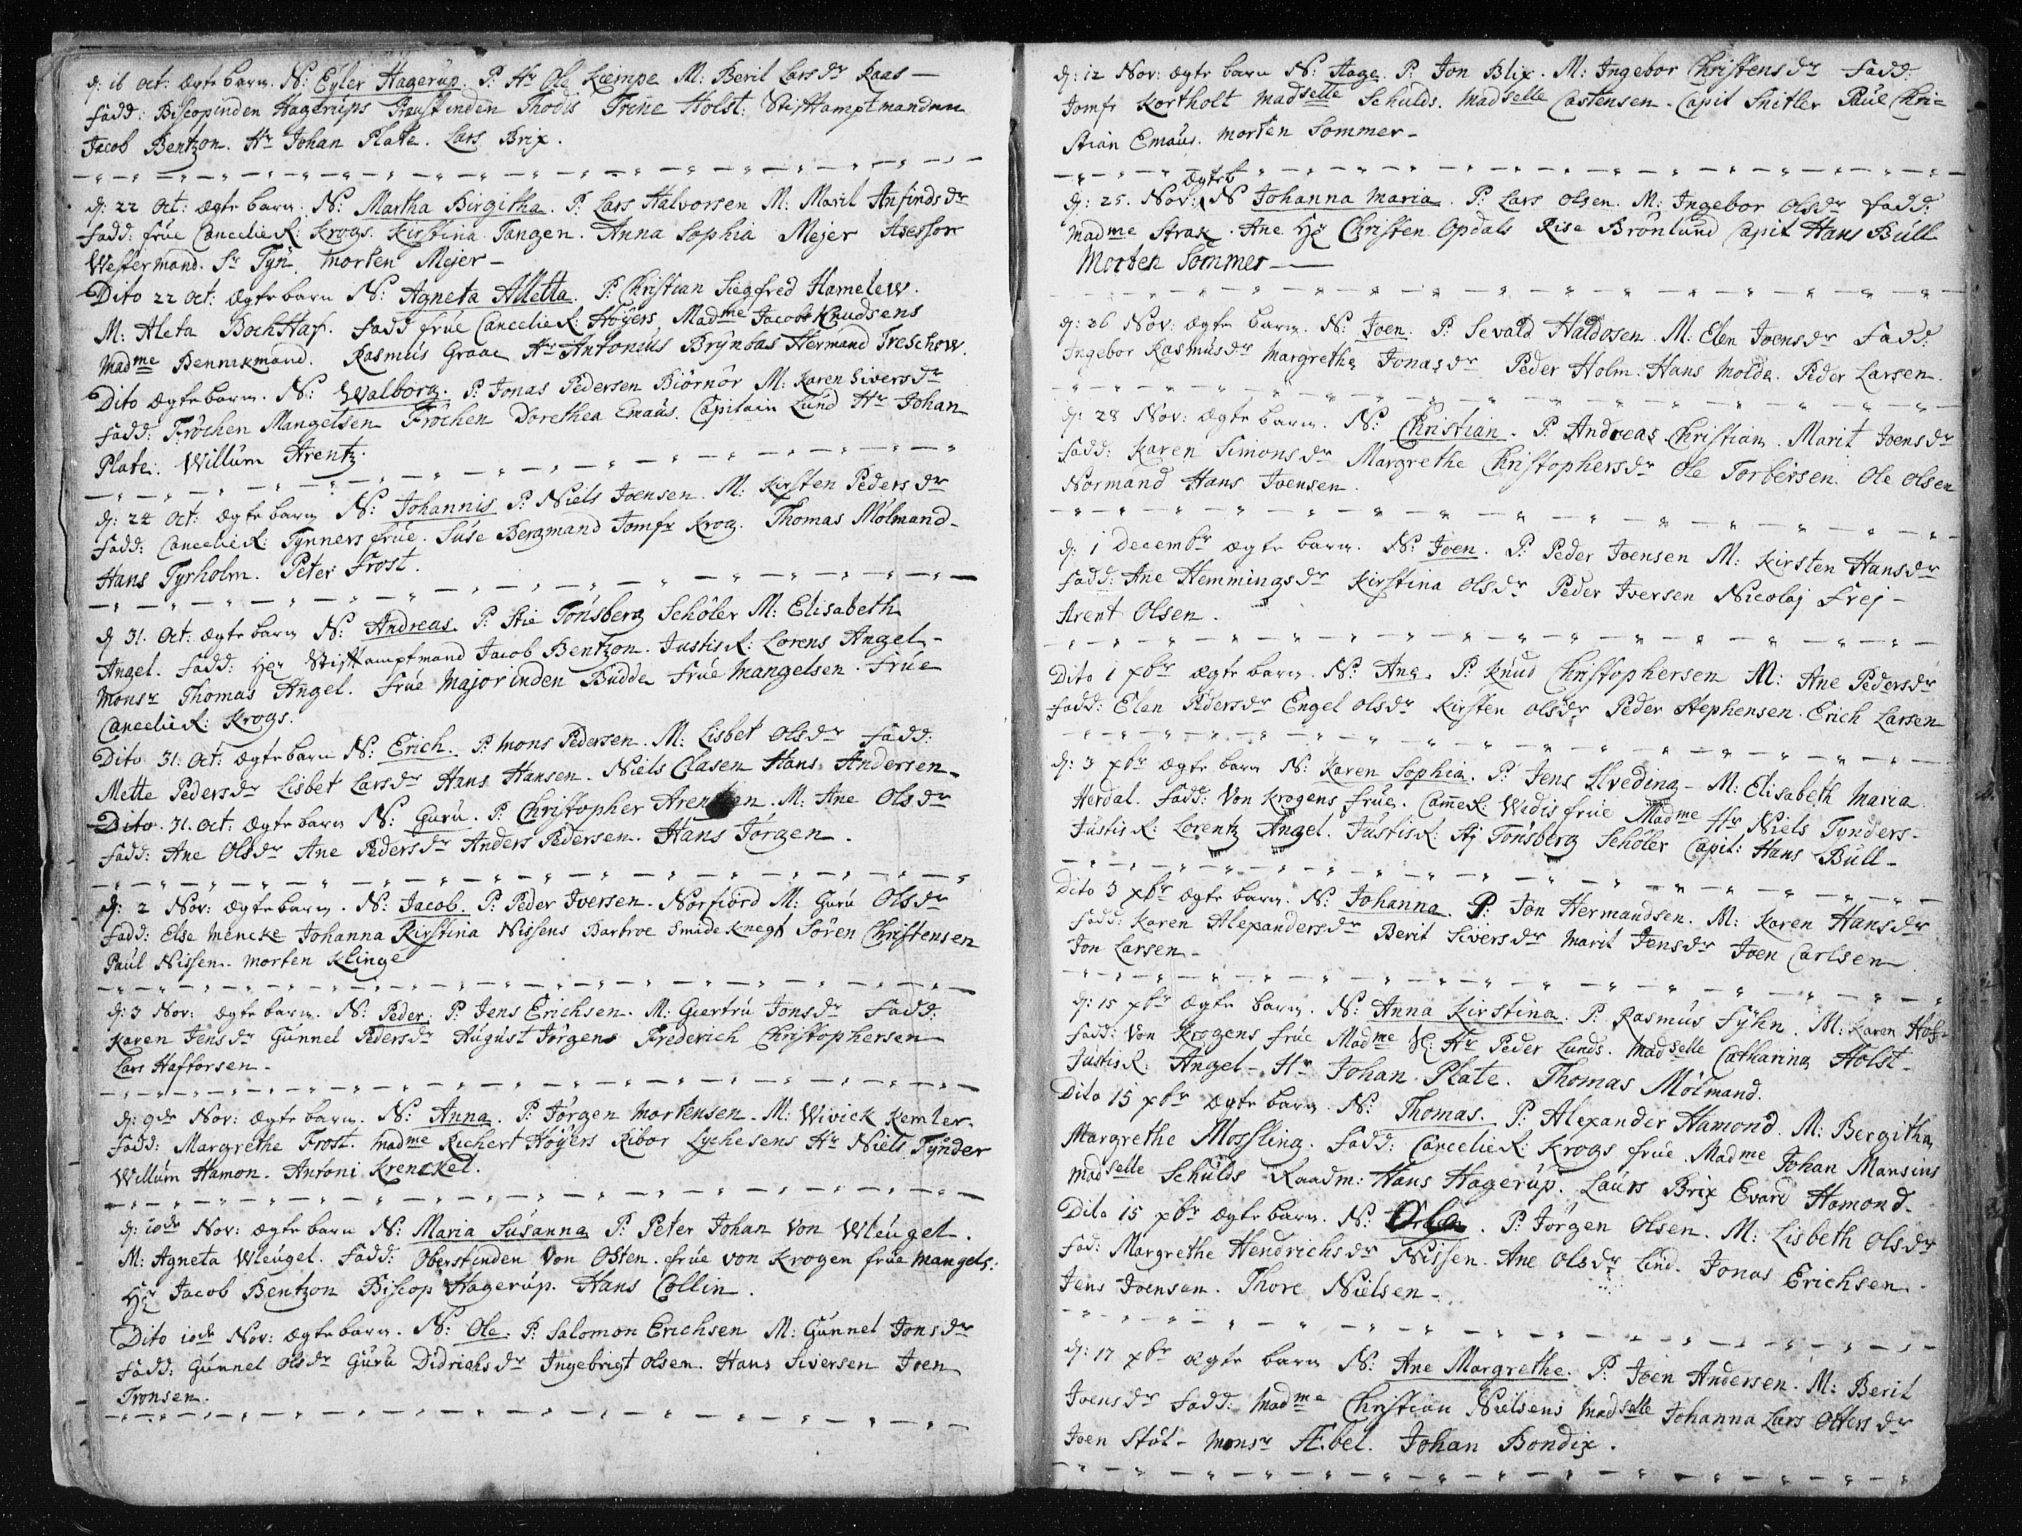 d: 16 oct: ægte barn. N: Eyler Hagerup. P: Hr Ole Kæmpe M: Beril Larsdr Raas —
Fadd: Biscopinden Hagerups Provstinden Thodis Trene Holst. Stiftamptmanden
Jacob Bentzon. Hr Johan Plate. Lars Brix.
d: 22 Oct: ægte barn. N: Martha Birgitha. P: Lars Halvorsen M: Maril Anfindsdr
Fadd: frue CancelieR: Krogs. Kirstina Tangen. Anna Sophia Mejer Asessor
Westermand. Sr Tÿn. Morten Mejer —
Dito 22 Oct: ægte barn N: Agneta Alletta. P: Christian Siegfred Hamelew.
M: Aleta Bochstaf. Fadd frue CancelieR: Høÿers Madme Jacob Knudsens
Madme Bennikmand. Rasmus Graae Hr Antonius Brÿnbas Hermand Treschow.
Dito ægte barn. N: Walborg. P: Jonas Pedersen Biørnør M: Karen Siversdr
Fadd: Frøchen Mangelsen Frøchen Dorethea Emaus. Capitain Lund Hr Johan
Plate. Willum Arentz.
d: 24 Oct: ægte barn N: Johannis P: Niels Joensen. M: Kirsten Pedersdr
Fadd: CancelieR: Tÿnners frue. Suse Bergmand Jomfr Krog. Thomas Mølmand —
Hans Tyrholm. Peter Frost.
d 31. Oct: ægte barn N: Andreas. P: Stie Tønsberg Schøler M: Elisabeth
Angel. Fadd: Hr Stiftamptmand Jacob Bentzon. JustisR: Lorens Angel —
Monsr Thomas Angel. Frue Majorinden Budde Frue Mangelsen. Frue
CancelieR: Krogs.
Dito 31. Oct: ægte barn N: Erich. P: Mons Pedersen. M: Lisbet Olsdr Fadd:
Mette Pedersdr Lisbet Larsdr Hans Hansen. Niels Clasen Hans Andersen —
Dito. 31. Oct: ægte barn N: Guru. P: Christopher Arentsen. M: Ane Olsdr
Fadd: Ane Olsdr Ane Pedersdr Anders Pedersen. Hans Jørgen.
d: 2 Nov: ægte barn. N: Jacob. P: Peder Iversen. Norfiord M: Guru Olsdr
Fadd: Else Mencke Johanna Kirstina Nissens Barbroe Smideknegt Søren Christensen
Paul Nissen. Morten Klinge
d: 3 Nov: ægte barn. N: Peder. P: Jens Erichsen. M: Giertru Jonsdr Fadd:
Karen Jensdr Gunnel Pedersdr August Jørgens Frederich Christophersen
Lars Haftorsen —
d: 9de Nov: ægte barn. N: Anna. P: Jørgen Mortensen. M: Wivick Kemler.
Fadd: Margrethe Frost. Madme Richert Høÿers Ribor Lychesens Hr Niels Tÿnder
Willum Hamon. Antoni Krenckel.
d: 10de Nov: ægte barn N: Maria Susanna P: Peter Johan von Wleugel.
M: Agneta Wleugel. Fadd: Oberstinden von Osten. frue von Krogen frue Mangels:
Hr Jacob Bentzon Biskop Hagerup. Hans Collin.
Dito 10de Nov: ægte barn. N: Ole. P: Salomon Erichsen M: Gunnel Jonsdr
Fadd: Gunnel Olsdr Guru Didrichsdr Ingebrigt Olsen. Hans Siversen Joen
Tronsen.
d: 12 Nov: ægte barn N: Aage. P: Jon Blix. M: Ingebor Christensdr Fadd:
Jomfr Kortholt Madselle Schulds. Madselle Castensen. Capit Snitler Paul Chri-
stian Emaus. Morten Sommer —
ægte b
d: 25. Nov: N Johanna Maria. P: Lars Olsen. M: Ingebor Olsdr Fadd:
Madme Strax. Ane Hr Christen Opdals Rise Brønlund Capit Hans Bull
Morten Sommer —
d: 26 Nov: ægte barn. N: Joen. P: Sevald Haldosen. M: Elen Joensdr Fadd:
Ingebor Rasmusdr Margrethe Jonasdr Peder Holm. Hans Molde. Peder Larsen.
d: 28 Nov: ægte barn. N: Christian. P: Andreas Christian. Marit Joensdr
Fadd: Karen Simonsdr Margrethe Christophersdr Ole Torbersen. Ole Olsen
Normand Hans Joensen.
d: 1 Decembr ægte barn. N: Joen. P: Peder Joensen M: Kirsten Hansdr
Fadd: Ane Hemmingsdr Kirstina Olsdr Peder Iversen Nicolaj Frej —
Arent Olsen.
Dito 1 xbr ægte barn. N: Ane. P: Knud Christophersen M: Ane Pedersdr
Fadd: Elen Pedersdr Engel Olsdr Kirsten Olsdr Peder Stephensen. Erich Larsen
d: 3 xbr ægte barn N: Karen Sophia. P: Jens Sveding — M: Elisabeth Maria
Herdal. Fadd: Von Krogens frue. CameR: Wedis frue Madme Hr Niels Tynders —
JustisR: Lorentz Angel. JustisR: Aj Tønsberg Schøler Capit: Hans Bull —
Dito 3 xbr ægte barn. N: Johanna. P: Jon Hermandsen. M: Karen Hansdr
Fadd: Karen Alexandersdr Berit Siversdr Marit Jensdr Joen Carlsen.
Jon Larsen —
d: 15 xbr ægte barn. N: Anna Kirstina. P: Rasmus Fÿhn. M: Karen Hos-
Fadd: Von Krogens frue Madme Hr Peder Lunds. Madselle Catharina Holst —
JustisR: Angel — Hr Johan Plate. Thomas Mølmand.
Dito 15 xbr ægte barn. N: Thomas. P: Alexander Hamond. M: Bergitha
Margrethe Mossling. Fadd: CancelieR: Krogs frue. Madme Johan Mansins
Madselle Schulds Raadm: Hans Hagerup. Laurs Brix Evard Hamond —
Dito 15 xbr ægte barn. N: Ole. P: Jørgen Olsen. M: Lisbeth Olsdr
Fad: Margrethe Hendrichsdr Nissen. Ane Olsdr Lind. Jonas Erichsen —
Jens Joensen. Thore Nielsen —
d: 17 xbr ægte barn N: Ane Margrethe. P: Joen Andersen. M: Beril
Joensdr Fadd: Madme Christian Nielsens Madselle Johanna Lars Ottersdr
Joen Støt — Monsr Æbel. Johan Bondix.